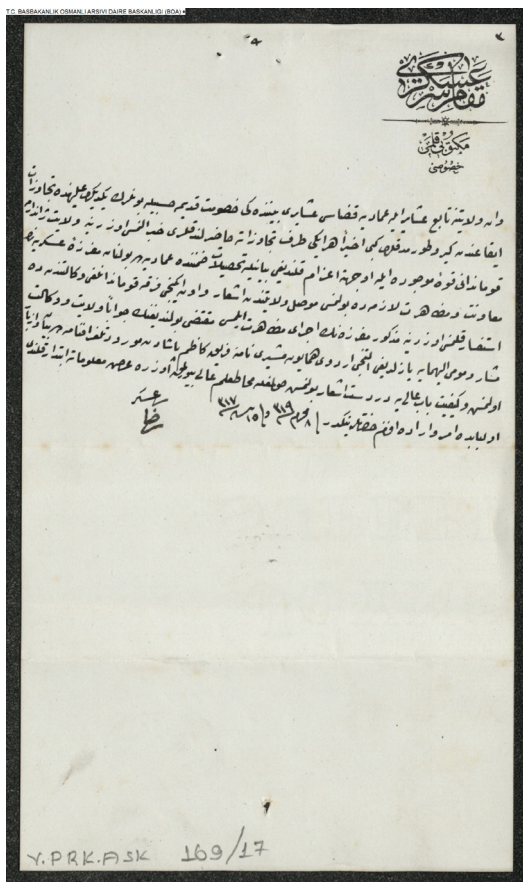 T.C. BASBAKANLIK OSMANLI ARSIVI DAIRE BASKANLIGI (BOA)
مقام سرعسكری
مكتوبی قلمی
خصوصی
وان ولايتنه تابع عشايرايله عماديه قضاسی عشايری بيننده كی خصومت قديمه حسبيله بو يكديكری عليهنده تجاوزات
ايقاعندن كيرو طورمدقلری كبی اخيراً هر ايكی طرف تجاوزاته حاضرلندقلری خبر النمسی اوزرينه ولايت ژاندارمه
قومانداني ايله اعزام قلنديغی بيانيله تحصيلات ضمننده عماديه ده بولنان مفرزهٔ عسكريه
معاونت ومظاهرت لازمه ده بولنمسی موصل ولايتندن اشعار واون ايكنجی فرقه قوماندانلغی وكالتندن ده
استفسار قلنمسی اوزرينه مذكور مفرزه نك اجرای مظاهرت ايلمسی مقتضی بولنديغنك جواباً ولايت ووكالت
مشار ومومی اليهمايه يازلديغی التنجی اردوی همايون مشيری نامنه فريق كاظم پاشادن مورود تلغرافنامه ده
اولنمش وكيفيت باب عالی يه دردست اشعار بولنمش اولمغله محاط علم عالی بيورلمق اوزره عرض معلوماته ابتدار قلندی
اولبابده امر واراده افندم حضرتلرينكدر
٨ محرم ٣١٩ و ١٥ نيسان ٣١٧
سر عسكر
رضا
Y.PRK.ASK 169/17